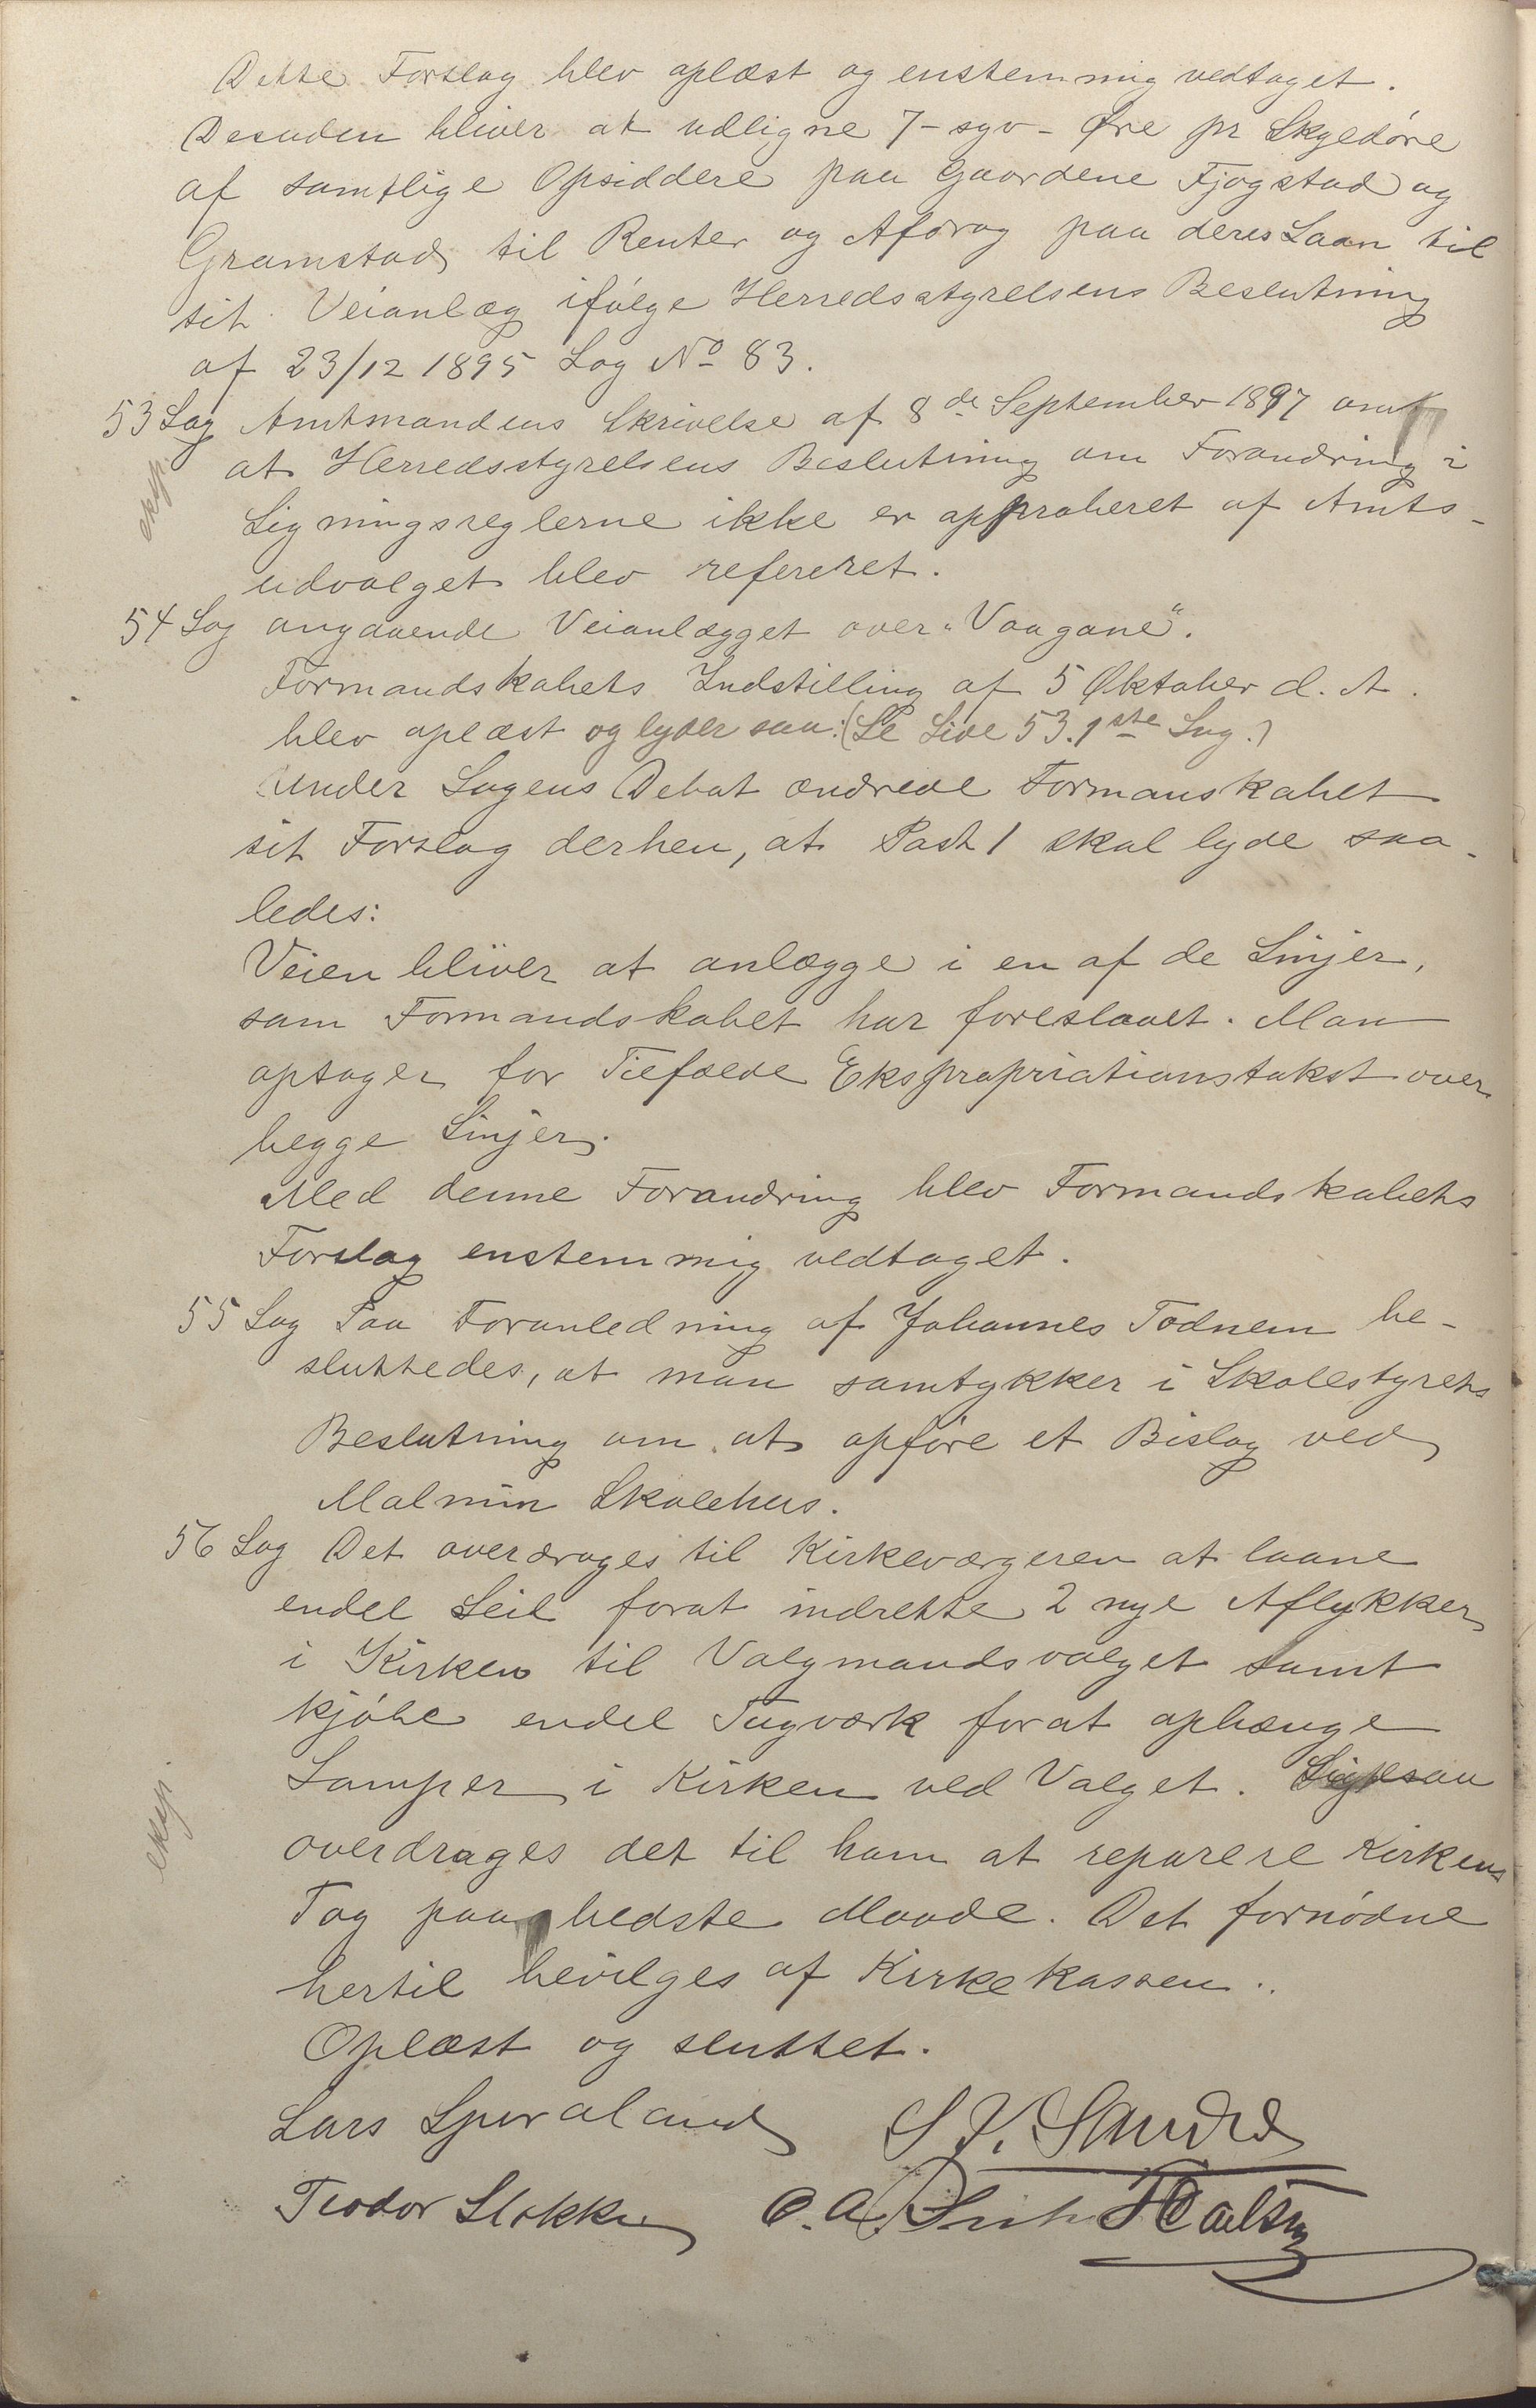 Dette Forslag blev oplæst og enstemmig vedtaget.
Desuden bliver at udligne 7 - syv - Øre pr Skyldøre
af samtlige Opsiddere paa Gaardene Fjogstad og
Gramstad til Renter og Afdrag paa deres Laan til
sit Veianlæg ifølge Herredsstyrelsens Beslutning
af 23/12 1895 Sag No 83.
53 Sag Amtmandens Skrivelse af 8de September 1897 om
at Herredsstyrelsens Beslutning om Forandring i
eksp.
Ligningsreglerne ikke er approberet af Amts-
udvalget blev refereret.
54 Sag angaaende Veianlægget over "Vaagane".
Formandskabets Indstilling af 5 Oktober d. A.
blev oplæst og lyder saa: (Se Side 53. 1ste Sag.)
Under Sagens Debat ændrede Formanskabet
sit Forslag derhen, at Post 1 skal lyde saa-
ledes:
Veien bliver at anlægge i en af de Linjer,
som Formandskabet har foreslaaet. Man
optager for Tilfælde Ekspropriationstakst over
begge Linjer.
Med denne Forandring blev Formandskabets
Forslag enstemmig vedtaget.
55 Sag Paa Foranledning af Johannes Todnem be-
sluttedes, at man samtykker i Skolestyrets
Beslutning om at opføre et Bislag ved
Malmin Skolehus.
56 Sag Det overdrages til Kirkeværgeren at laane
endel Seil forat indrette 2 nye Aflykker
i Kirken til Valgmandsvalget samt
kjøbe endel Tugværk forat ophænge
Lamper i Kirken ved Valget. Ligesaa
eksp.
overdrages det til ham at reparere Kirkens
Tag paa bedste Maade. Det fornødne
hertil bevilges af Kirkekassen.
Oplæst og sluttet.
Lars Spuraland S. V. Sandve
Teodor Stokke O. A.